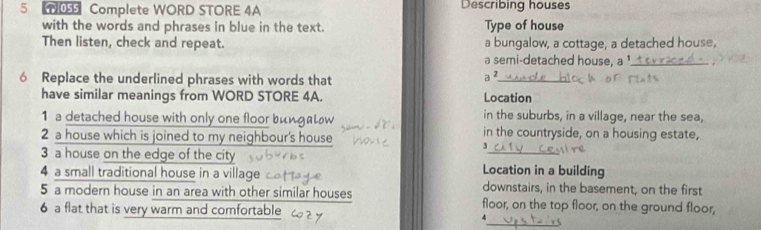 5 055 Complete WORD STORE 4A
with the words and phrases in blue in the text.
Then listen, check and repeat.
6 Replace the underlined phrases with words that
have similar meanings from WORD STORE 4A.
1 a detached house with only one floor bungalow
2 a house which is joined to my neighbour's house house
3 a house on the edge of the city suburbs
4 a small traditional house in a village cottage
5 a modern house in an area with other similar houses
6 a flat that is very warm and comfortable cozy
Describing houses
Type of house
a bungalow, a cottage, a detached house,
a semi-detached house, a 1 terraced
a 2 block of flats
Location
in the suburbs, in a village, near the sea,
in the countryside, on a housing estate,
3 city centre
Location in a building
downstairs, in the basement, on the first
floor, on the top floor, on the ground floor,
4 upstairs